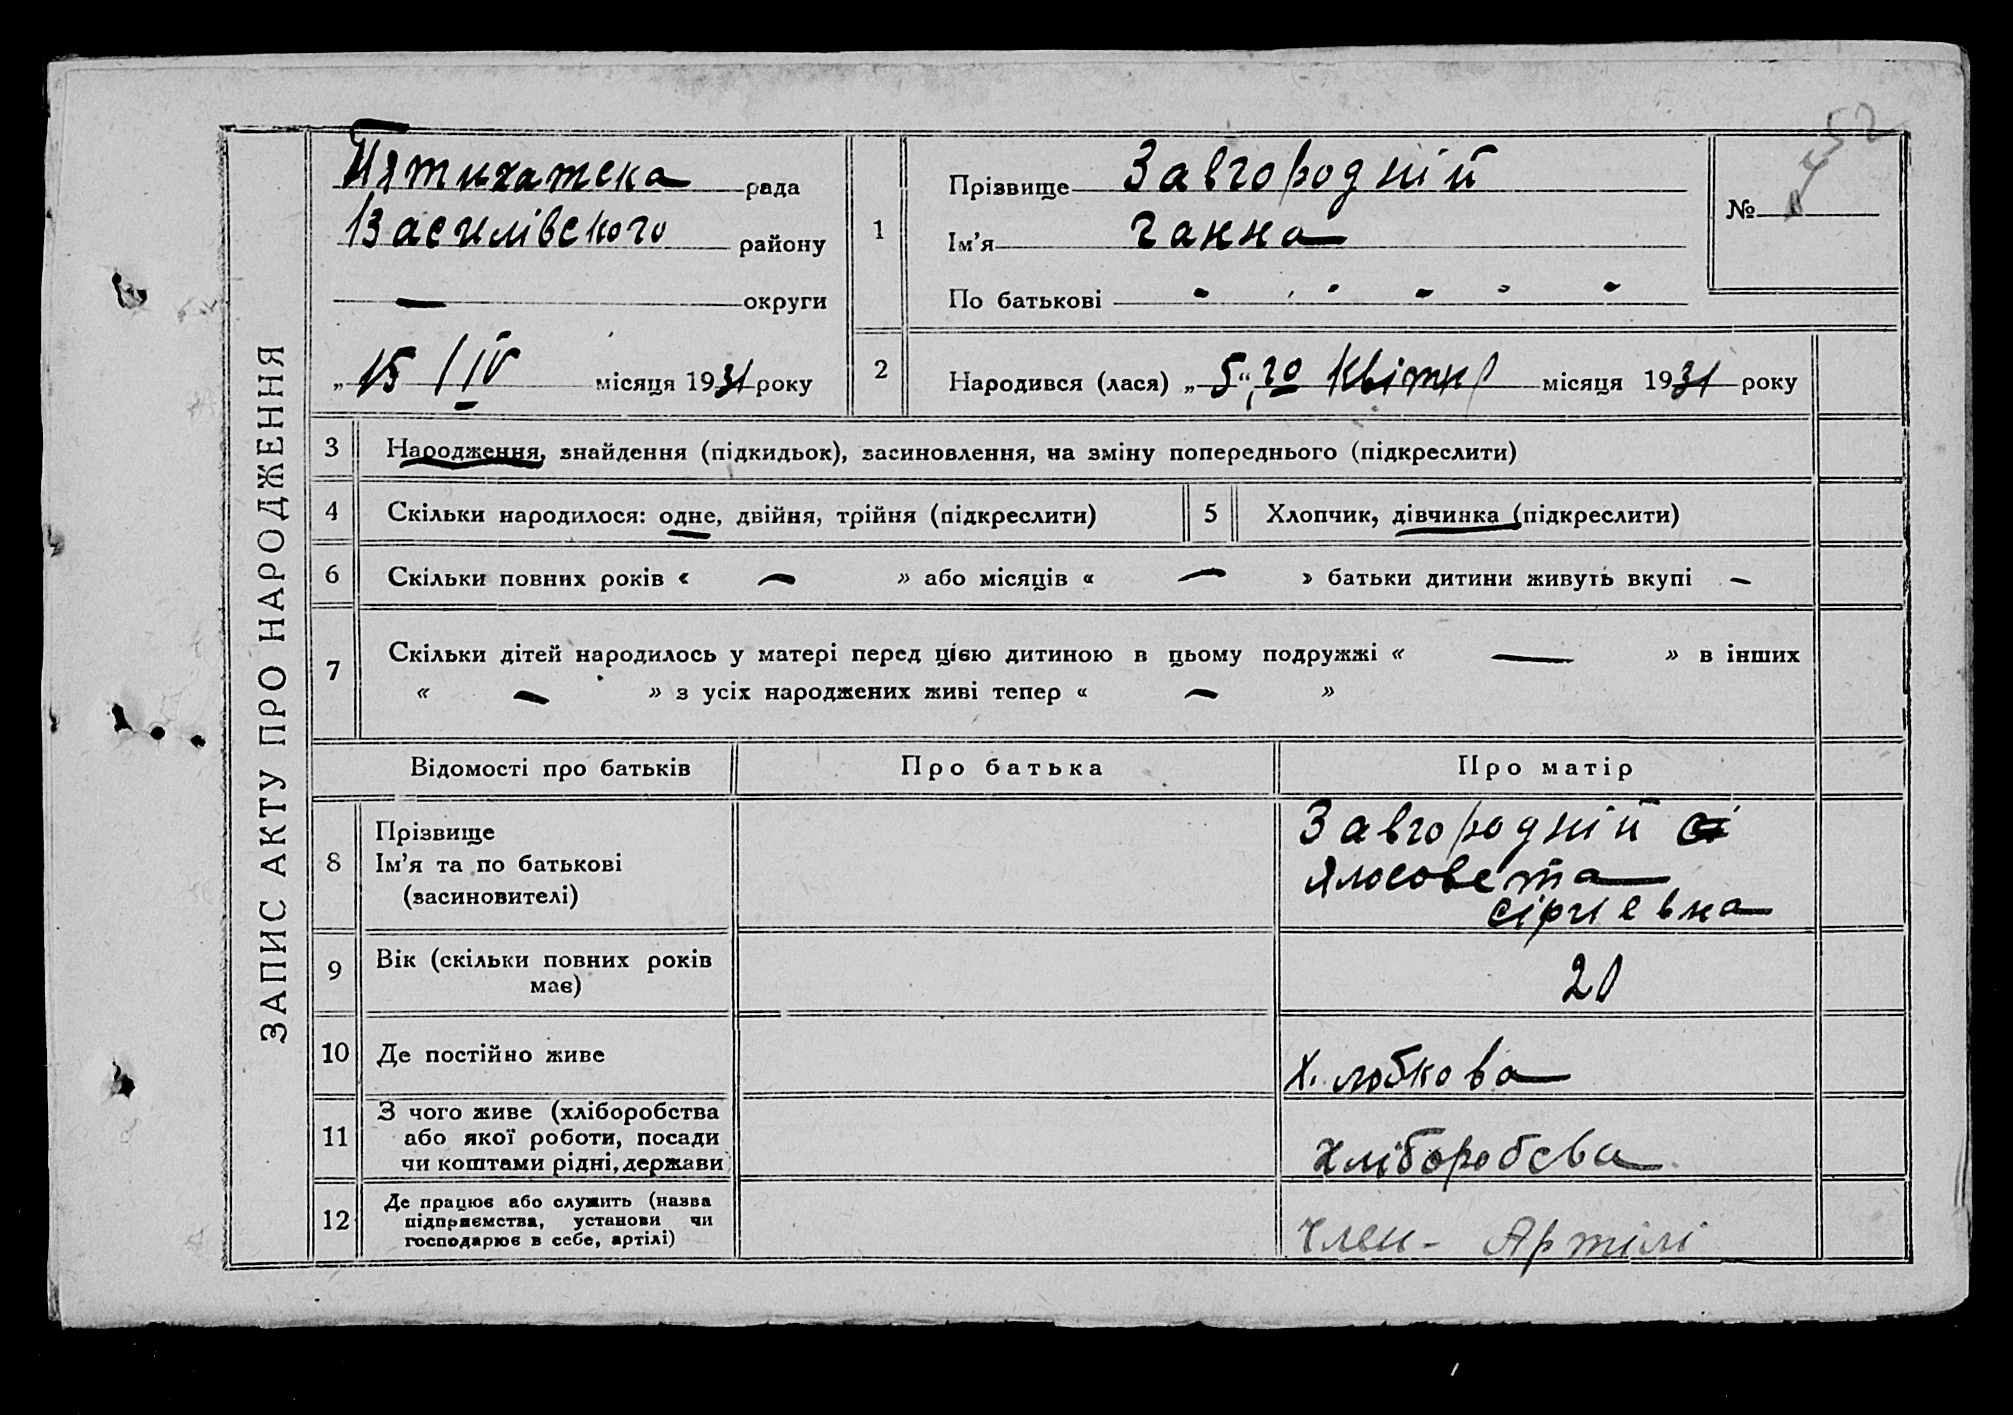 52
ЗАПИС АКТУ ПРО НАРОДЖЕННЯ
Пятихатска рада
Василівского району
— округи
„ 15 / IV місяця 1931 року
1
Прізвище Завгородній
Ім’я Ганна
По батькові
№
2
Народився (лася) „ 5 “ го Квітня місяця 1931 року
3 Народження, знайдення (підкидьок), засиновлення, на зміну попереднього (підкреслити)
4 Скільки народилося: одне, двійня, трійня (підкреслити)
5 Хлопчик, дівчинка (підкреслити)
6 Скільки повних років « — » або місяців « — » батьки дитини живуть вкупі —
7 Скільки дітей народилось у матері перед цією дитиною в цьому подружжі « — » в інших
« — » з усіх народжених живі тепер « — »
Відомості про батьків Про батька Про матір
8 Прізвище
Ім’я та по батькові
(засиновителі)
Завгородній
Ялосовета
Сіргіевна
9 Вік (скільки повних років
має)
20
10 Де постійно живе
х. любкова
11 З чого живе (хліборобства
або якої роботи, посади
чи коштами рідні, держави
хліборобсва
12 Де працює або служить (назва
підприємства, установи чи
господарює в себе, артілі)
член - Артілі